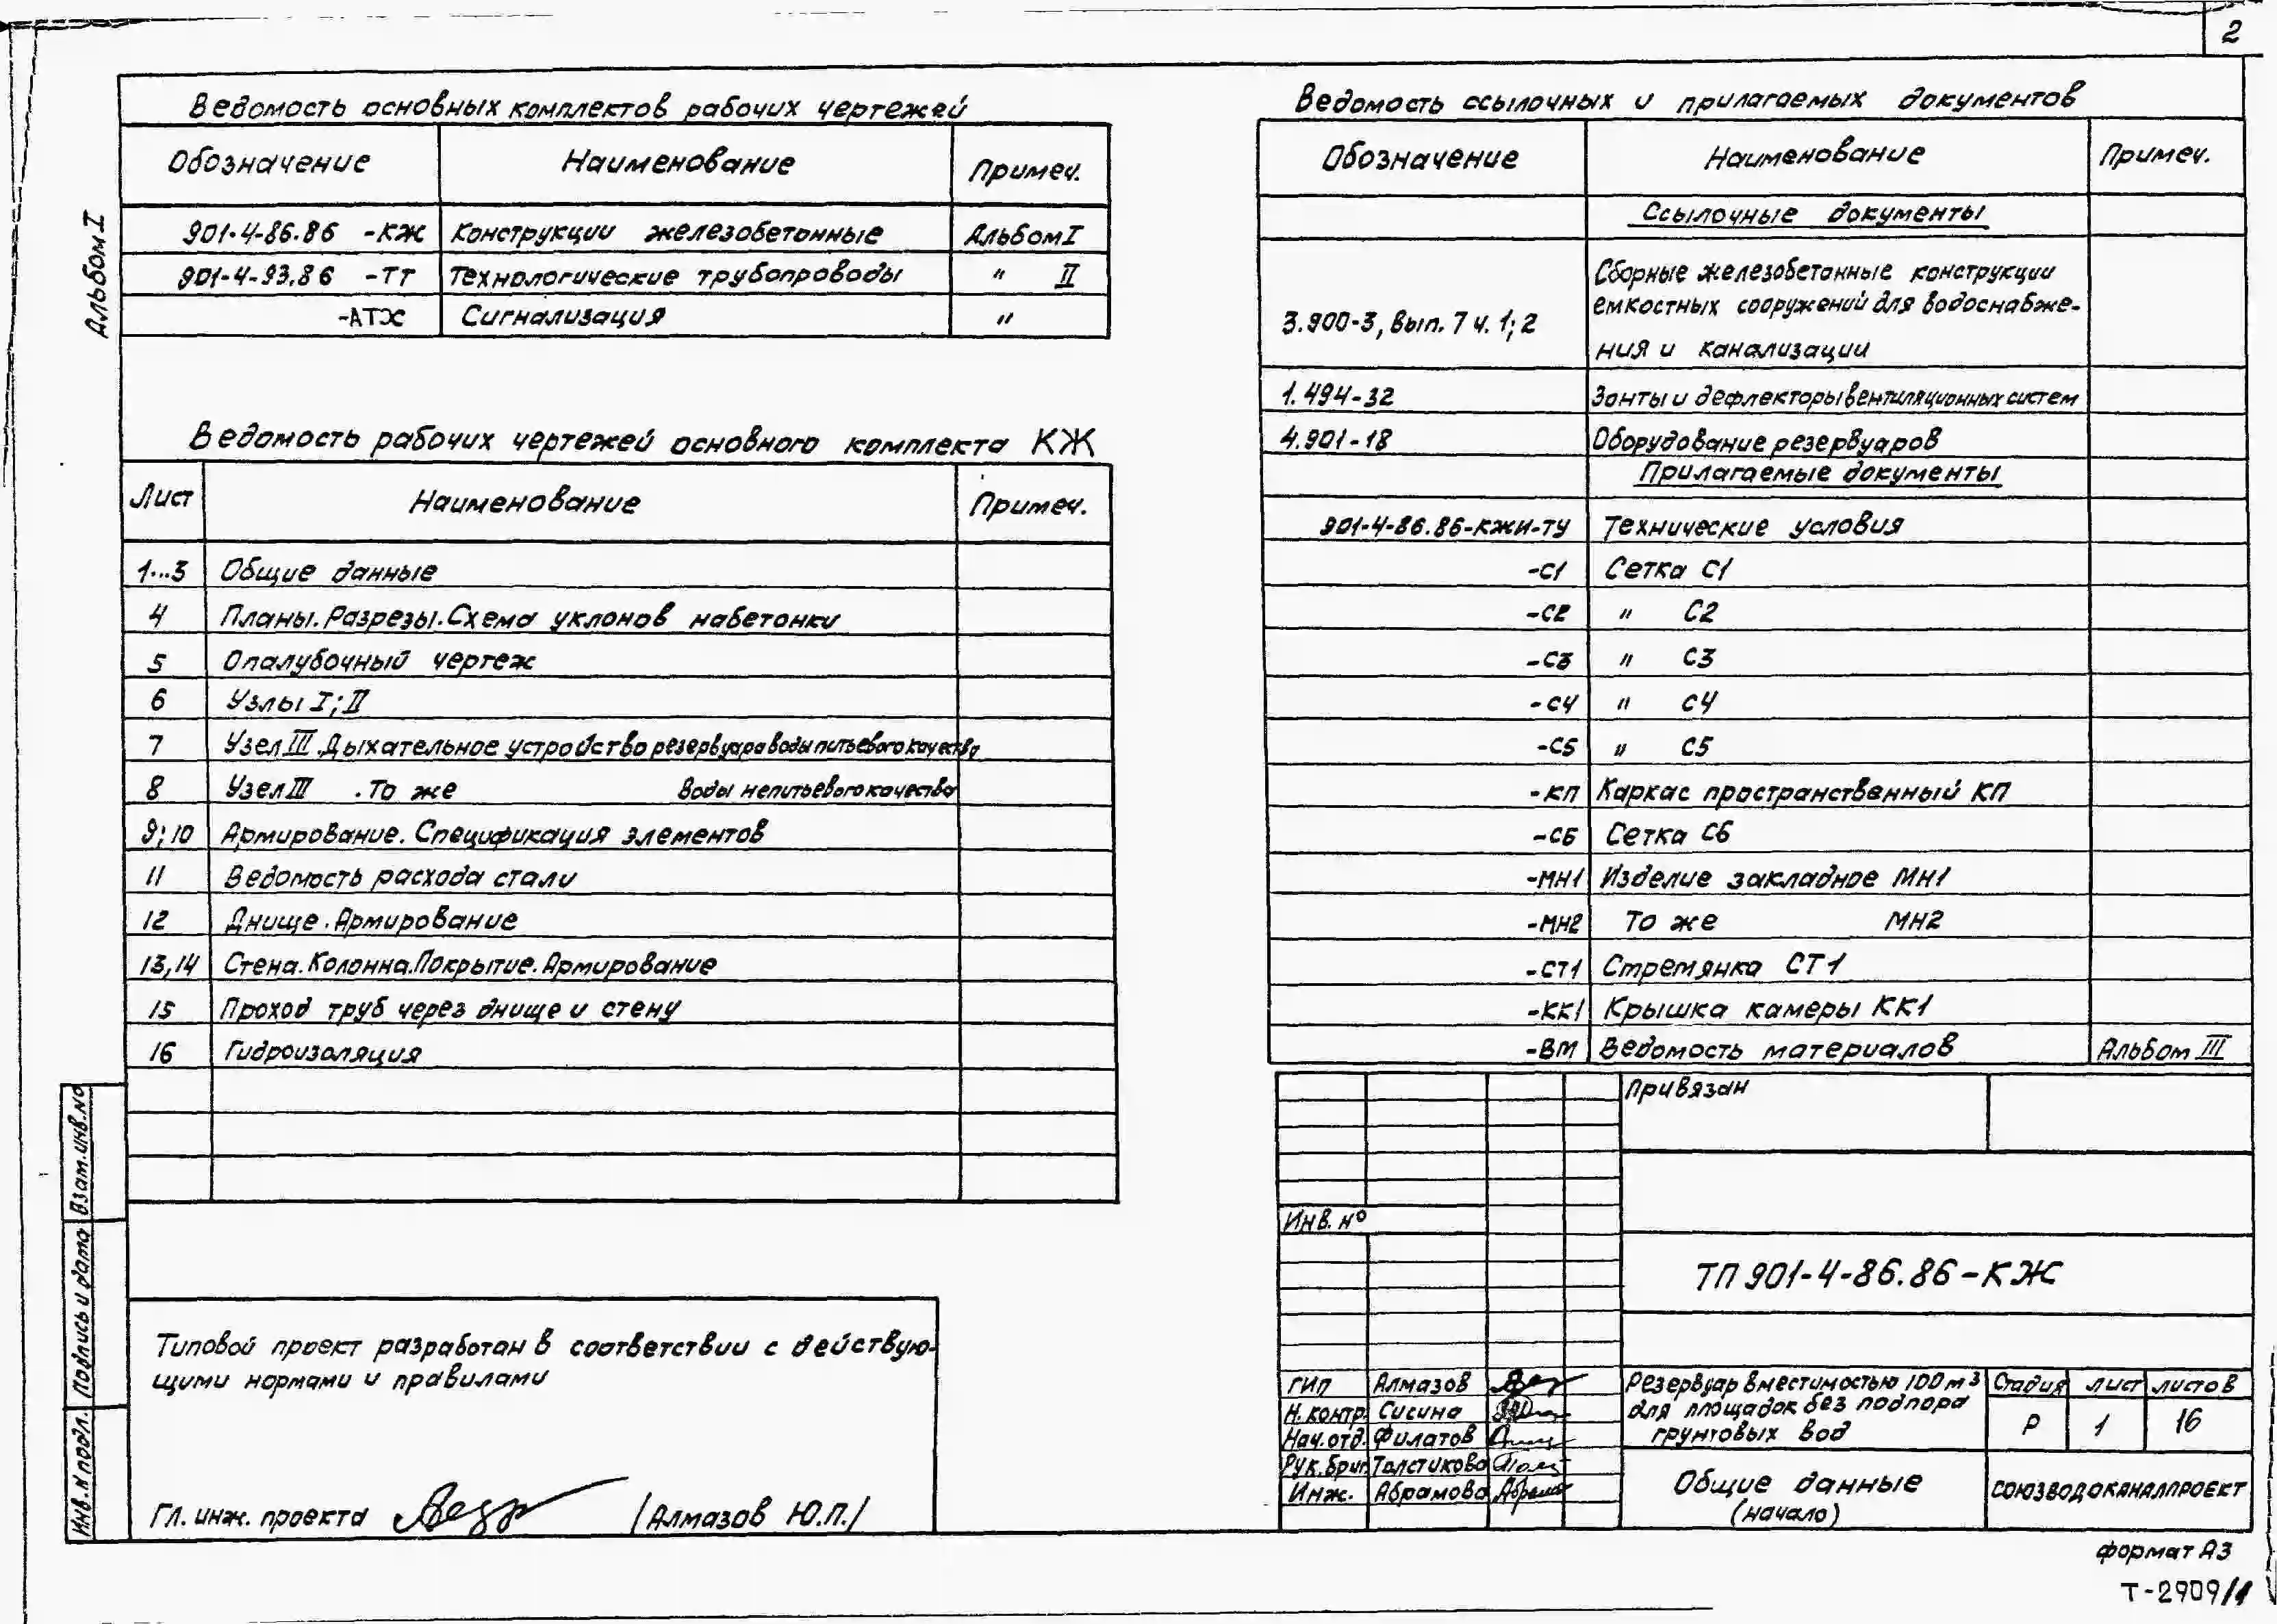 2
Альбом I
Ведомость основных комплектов рабочих чертежей
Обозначение Наименование Примеч.
901-4-86.86 -КЖ Конструкции железобетонные Альбом I
901-4-93.86 -ТТ Технологические трубопроводы " II
-АТХ Сигнализация "
Ведомость рабочих чертежей основного комплекта КЖ
Лист Наименование Примеч.
1...3 Общие данные
4 Планы. Разрезы. Схема уклонов набетонки
5 Опалубочный чертеж
6 Узлы I; II
7 Узел III. Дыхательное устройство резервуара воды питьевого качества
8 Узел III . То же воды непитьевого качества
9; 10 Армирование. Спецификация элементов
11 Ведомость расхода стали
12 Днище. Армирование
13, 14 Стена. Колонна. Покрытие. Армирование
15 Проход труб через днище и стену
16 Гидроизоляция
Типовой проект разработан в соответствии с действую-
щими нормами и правилами
Гл. инж. проекта /Алмазов Ю.П./
Взам. инв. №
Подпись и дата
Инв. № подл.
Ведомость ссылочных и прилагаемых документов
Обозначение Наименование Примеч.
Ссылочные документы
Сборные железобетонные конструкции
емкостных сооружений для водоснабже-
3.900-3, вып. 7 ч. 1; 2
ния и канализации
1.494-32 Зонты и дефлекторы вентиляционных систем
4.901-18 Оборудование резервуаров
Прилагаемые документы
901-4-86.86-КЖИ-ТУ Технические условия
-С1 Сетка С1
-С2 " С2
-С3 " С3
-С4 " С4
-С5 " С5
-КП Каркас пространственный КП
-С6 Сетка С6
-МН1 Изделие закладное МН1
-МН2 То же МН2
-СТ1 Стремянка СТ1
-КК1 Крышка камеры КК1
-ВМ Ведомость материалов Альбом III
Привязан
Инв. №
ТП 901-4-86.86-КЖ
ГИП Алмазов
Н. контр. Сисина
Нач. отд. Филатов
Рук. бриг. Толстикова
Инж. Абрамова
Резервуар вместимостью 100 м³
для площадок без подпора
грунтовых вод
Стадия лист листов
Р 1 16
Общие данные
(начало)
СОЮЗВОДОКАНАЛПРОЕКТ
формат А3
Т-2909/1